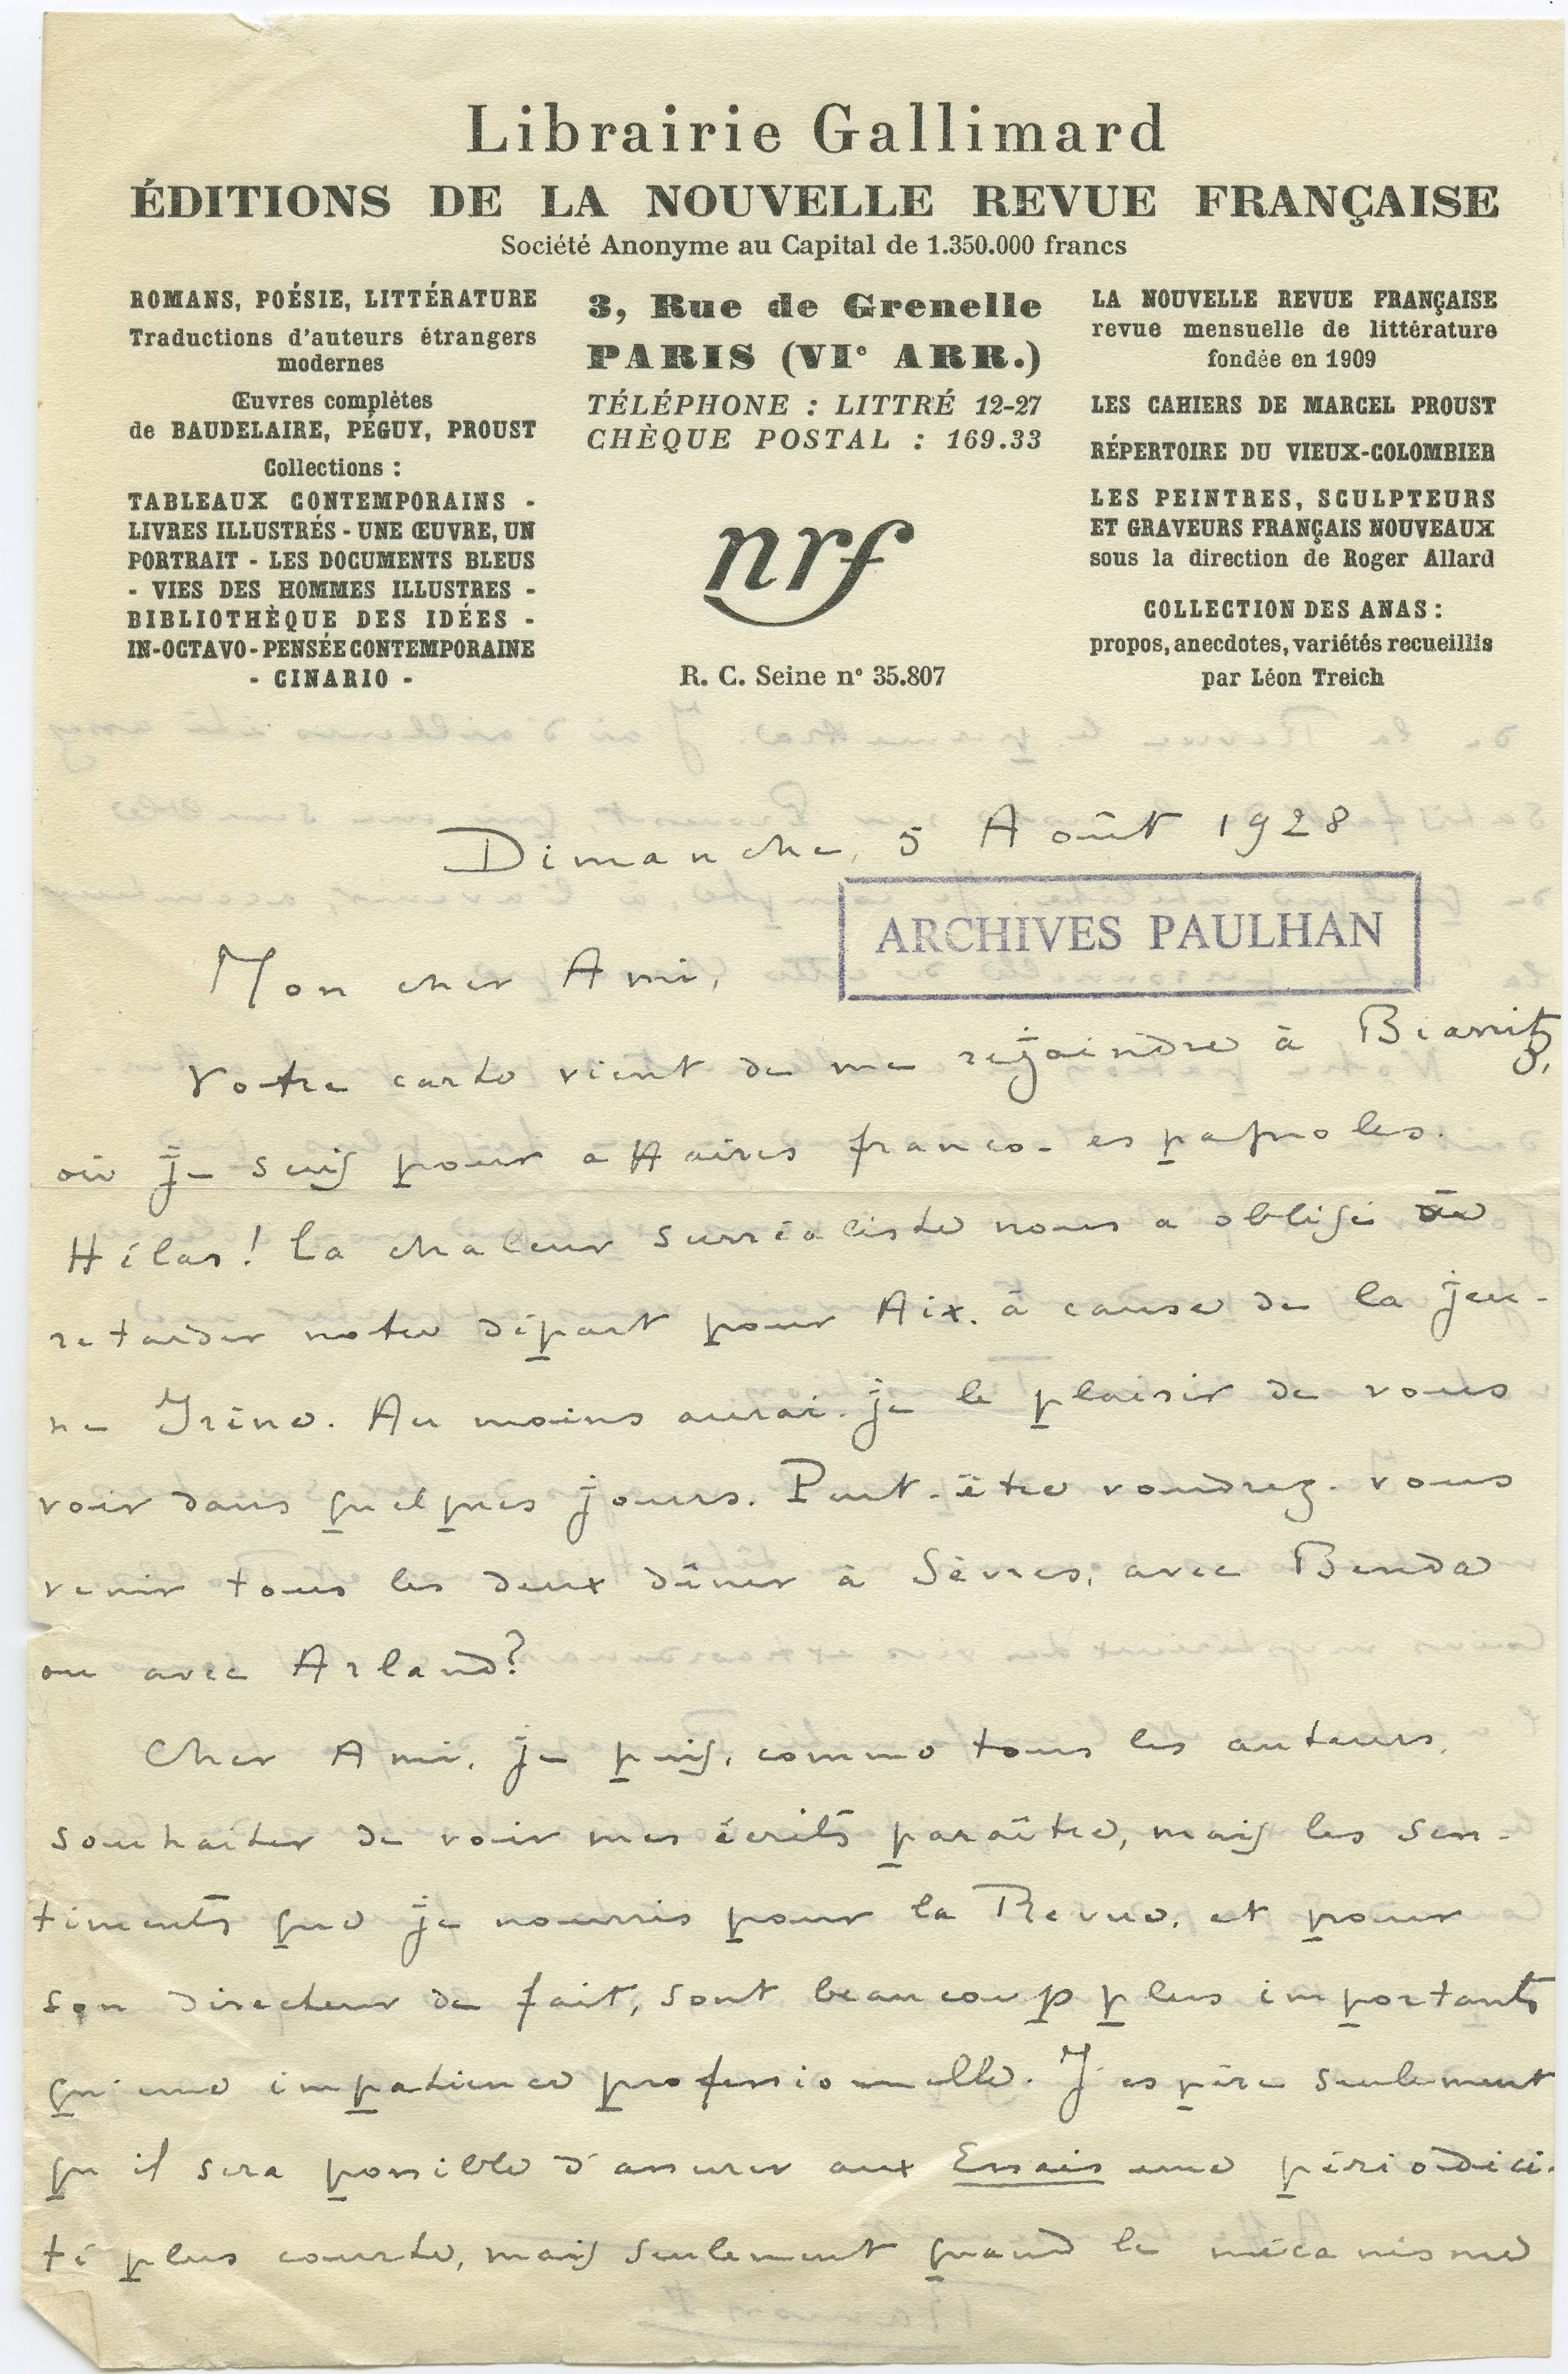 Librairie Gallimard
ÉDITIONS DE LA NOUVELLE REVUE FRANÇAISE
Société Anonyme au Capital de 1.350.000 francs
ROMANS, POÉSIE, LITTÉRATURE
Traductions d'auteurs étrangers
modernes
Œuvres complètes
de BAUDELAIRE, PÉGUY, PROUST
Collections :
TABLEAUX CONTEMPORAINS -
LIVRES ILLUSTRÉS - UNE ŒUVRE, UN
PORTRAIT - LES DOCUMENTS BLEUS
- VIES DES HOMMES ILLUSTRES -
BIBLIOTHÈQUE DES IDÉES -
IN-OCTAVO - PENSÉE CONTEMPORAINE
- CINARIO -
3, Rue de Grenelle
PARIS (VIe ARR.)
TÉLÉPHONE : LITTRÉ 12-27
CHÈQUE POSTAL : 169.33
nrf
R. C. Seine n° 35.807
LA NOUVELLE REVUE FRANÇAISE
revue mensuelle de littérature
fondée en 1909
LES CAHIERS DE MARCEL PROUST
RÉPERTOIRE DU VIEUX-COLOMBIER
LES PEINTRES, SCULPTEURS
ET GRAVEURS FRANÇAIS NOUVEAUX
sous la direction de Roger Allard
COLLECTION DES ANAS :
propos, anecdotes, variétés recueillis
par Léon Treich
Dimanche, 5 Août 1928
ARCHIVES PAULHAN
Mon cher Ami,
Votre carte vient de me rejoindre à Biarritz,
où je suis pour affaires franco-espagnoles.
Hélas! La chaleur surréaliste nous a obligé de
retarder notre départ pour Aix, à cause de la jeu-
ne Irène. Au moins aurai-je le plaisir de vous
voir dans quelques jours. Peut-être voudrez-vous
venir tous les deux dîner à Sèvres, avec Benda
ou avec Arland?
Cher Ami, je puis, comme tous les auteurs,
souhaiter de voir mes écrits paraître, mais les sen-
timents que je nourris pour la Revue, et pour
son directeur de fait, sont beaucoup plus importants
qu'une impatience professionnelle. J'espère seulement
qu'il sera possible d'assurer aux Essais une périodici-
té plus courte, mais seulement quand le mécanisme